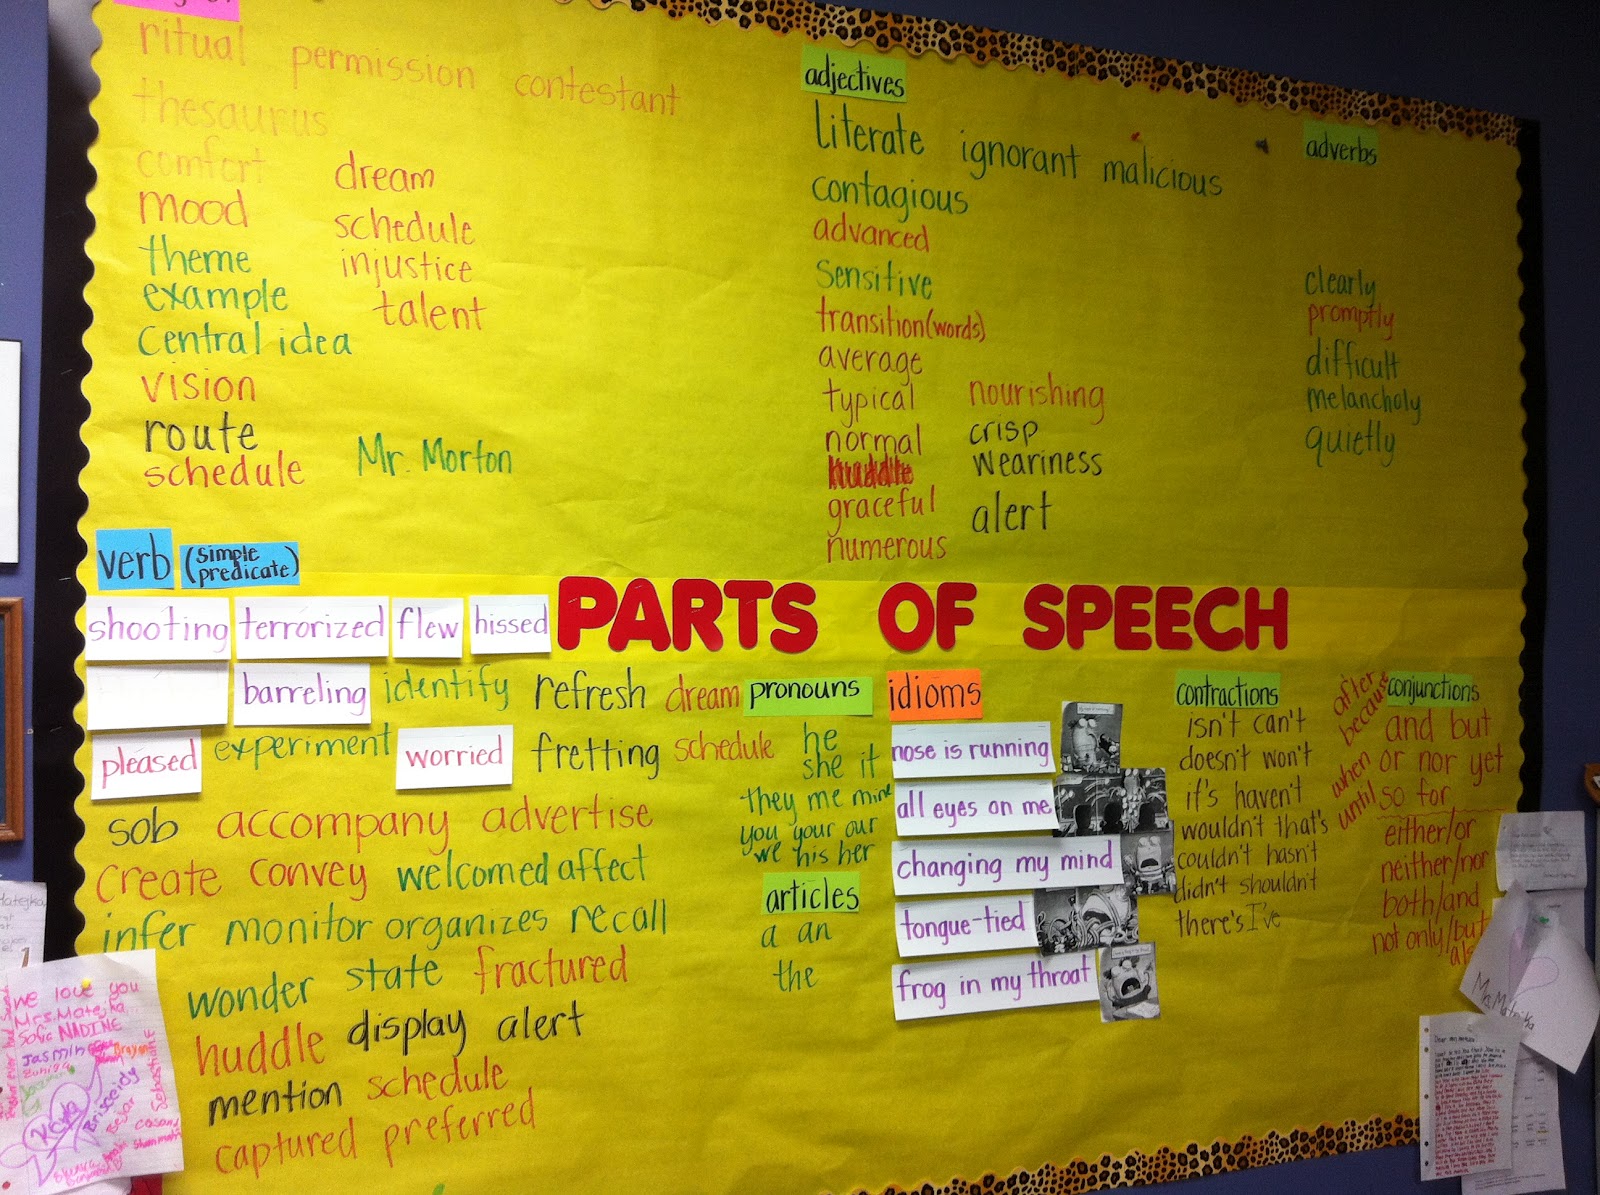 ritual permission contestant
thesaurus
comfort dream
mood schedule
theme injustice
example talent
central idea
vision
route
schedule Mr. Morton
adjectives
literate ignorant malicious
contagious
advanced
sensitive
transition(words)
average
typical nourishing
normal crisp
huddle weariness
graceful alert
numerous
adverbs
clearly
promptly
difficult
melancholy
quietly
verb (simple predicate)
PARTS OF SPEECH
shooting terrorized flew hissed
barreling identify refresh dream
pleased experiment worried fretting schedule
sob accompany advertise
create convey welcomed affect
infer monitor organizes recall
wonder state fractured
huddle display alert
mention schedule
captured preferred
pronouns
he
she it
they me mine
you your our
we his her
articles
a an
the
idioms
nose is running
all eyes on me
changing my mind
tongue-tied
frog in my throat
contractions
isn't can't
doesn't won't
it's haven't
wouldn't that's
couldn't hasn't
didn't shouldn't
there's I've
conjunctions
after
because
when
until
and but
or nor yet
so for
either/or
neither/nor
both/and
not only/but
als
we love you
Mrs. Matejka
Sofia NADINE
Jasmin
Briseidy
Sebastian
Mrs. Matejka